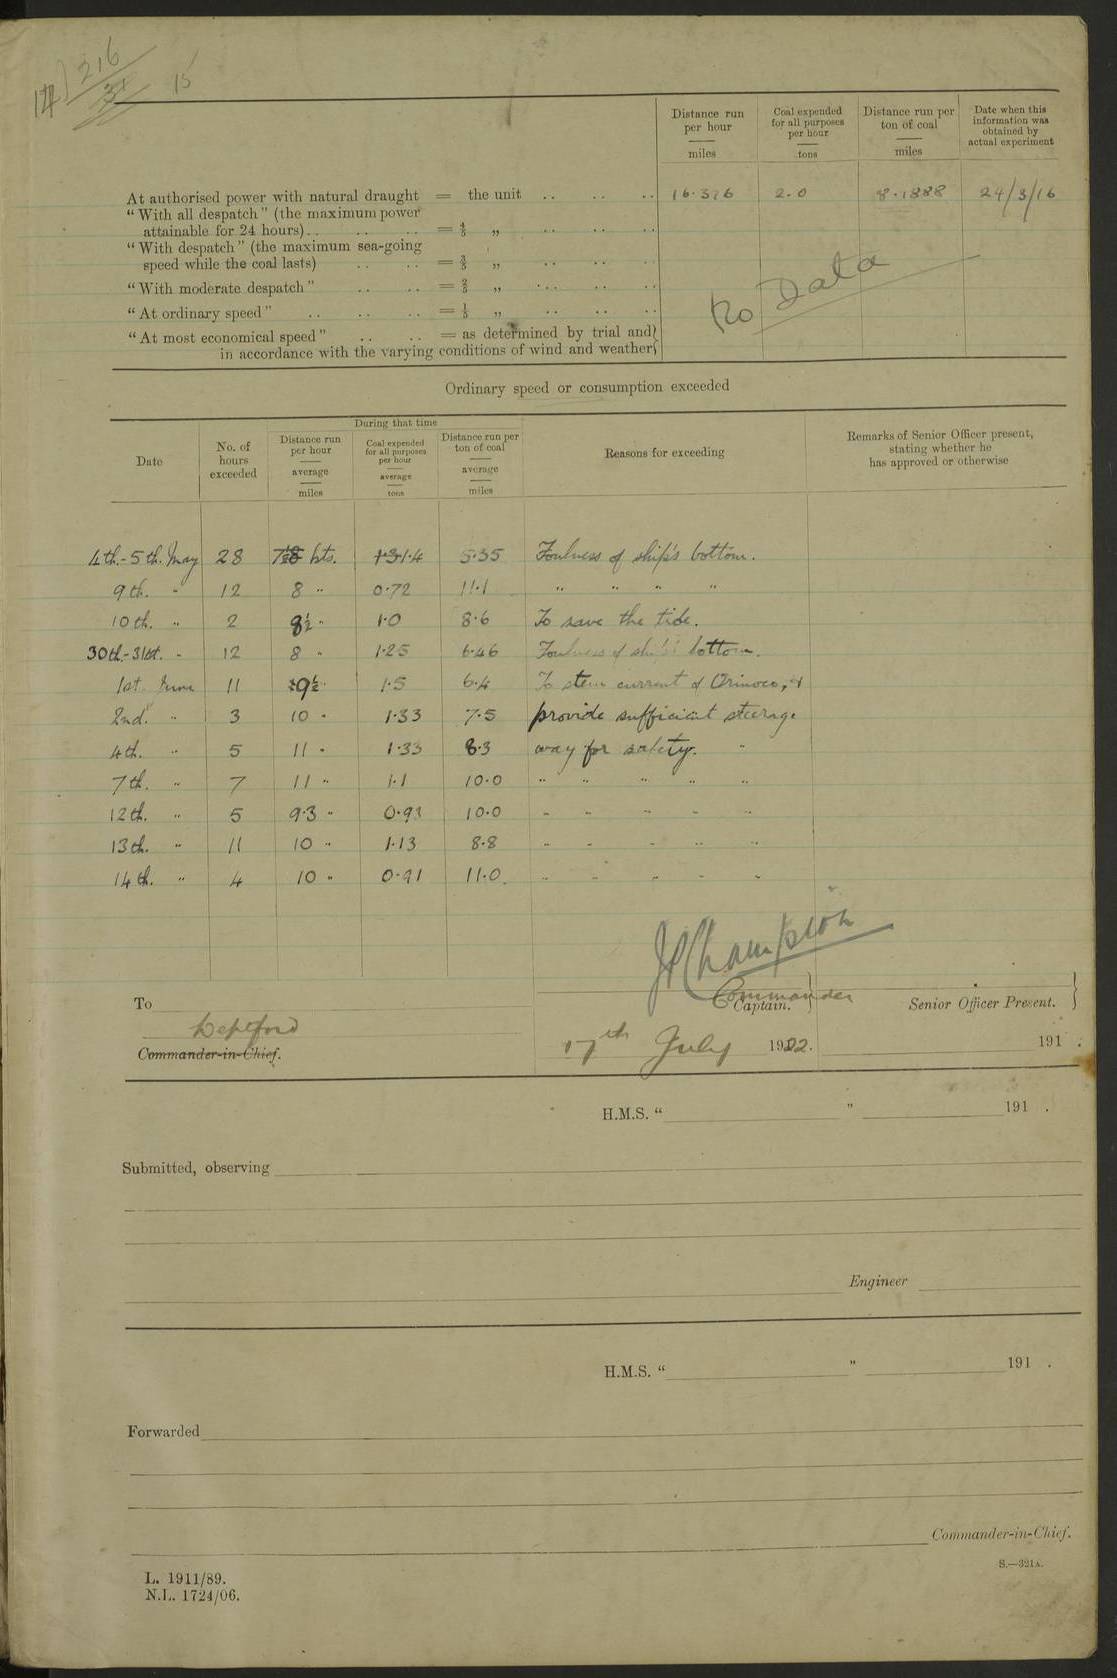 216
15
Distance run per hour miles
Coal expended for all purposes per hour tons
Distance run per ton of coal miles
Date when this information was obtained by actual experiment
At authorised power with natural draught = the unit .. .. .. 16.376 2.0 8.1888 24/3/16
"With all despatch" (the maximum power
attainable for 24 hours).. .. .. = 4/5 „ .. .. ..
"With despatch" (the maximum sea-going
speed while the coal lasts) .. .. = 3/5 „ .. .. ..
"With moderate despatch" .. .. = 2/5 „ .. .. ..
"At ordinary speed" .. .. .. = 1/5 „ .. .. ..
No Data
"At most economical speed" .. .. = as determined by trial and
in accordance with the varying conditions of wind and weather
Ordinary speed or consumption exceeded
During that time
Date
No. of hours exceeded
Distance run per hour average miles
Coal expended for all purposes per hour average tons
Distance run per ton of coal average miles
Reasons for exceeding
Remarks of Senior Officer present, stating whether he has approved or otherwise
4th.-5th. May 28 kts. 1.4 5.35 Foulness of ship's bottom.
9th. " 12 8 " 0.72 11.1 " " " "
10th. " 2 8½ " 1.0 8.6 To save the tide.
30th-31st. " 12 8 " 1.25 6.46 Foulness of ship's bottom.
1st June 11 9½ " 1.5 6.4 To stem current of Orinoco, &
2nd. " 3 10 " 1.33 7.5 provide sufficient steerage
4th. " 5 11 " 1.33 8.3 way for safety. "
7th. " 7 11 " 1.1 10.0 " " " " "
12th. " 5 9.3 " 0.93 10.0 " " " " "
13th. " 11 10 " 1.13 8.8 " " " " "
14th. " 4 10 " 0.91 11.0 " " " " "
Champion
Commander
To
Captain.
Senior Officer Present.
Deptford
Commander-in-Chief.
17th July 1922.
191 .
H.M.S. " " 191 .
Submitted, observing
Engineer
H.M.S. " " 191 .
Forwarded
Commander-in-Chief.
S.—321A.
L. 1911/89.
N.L. 1724/06.